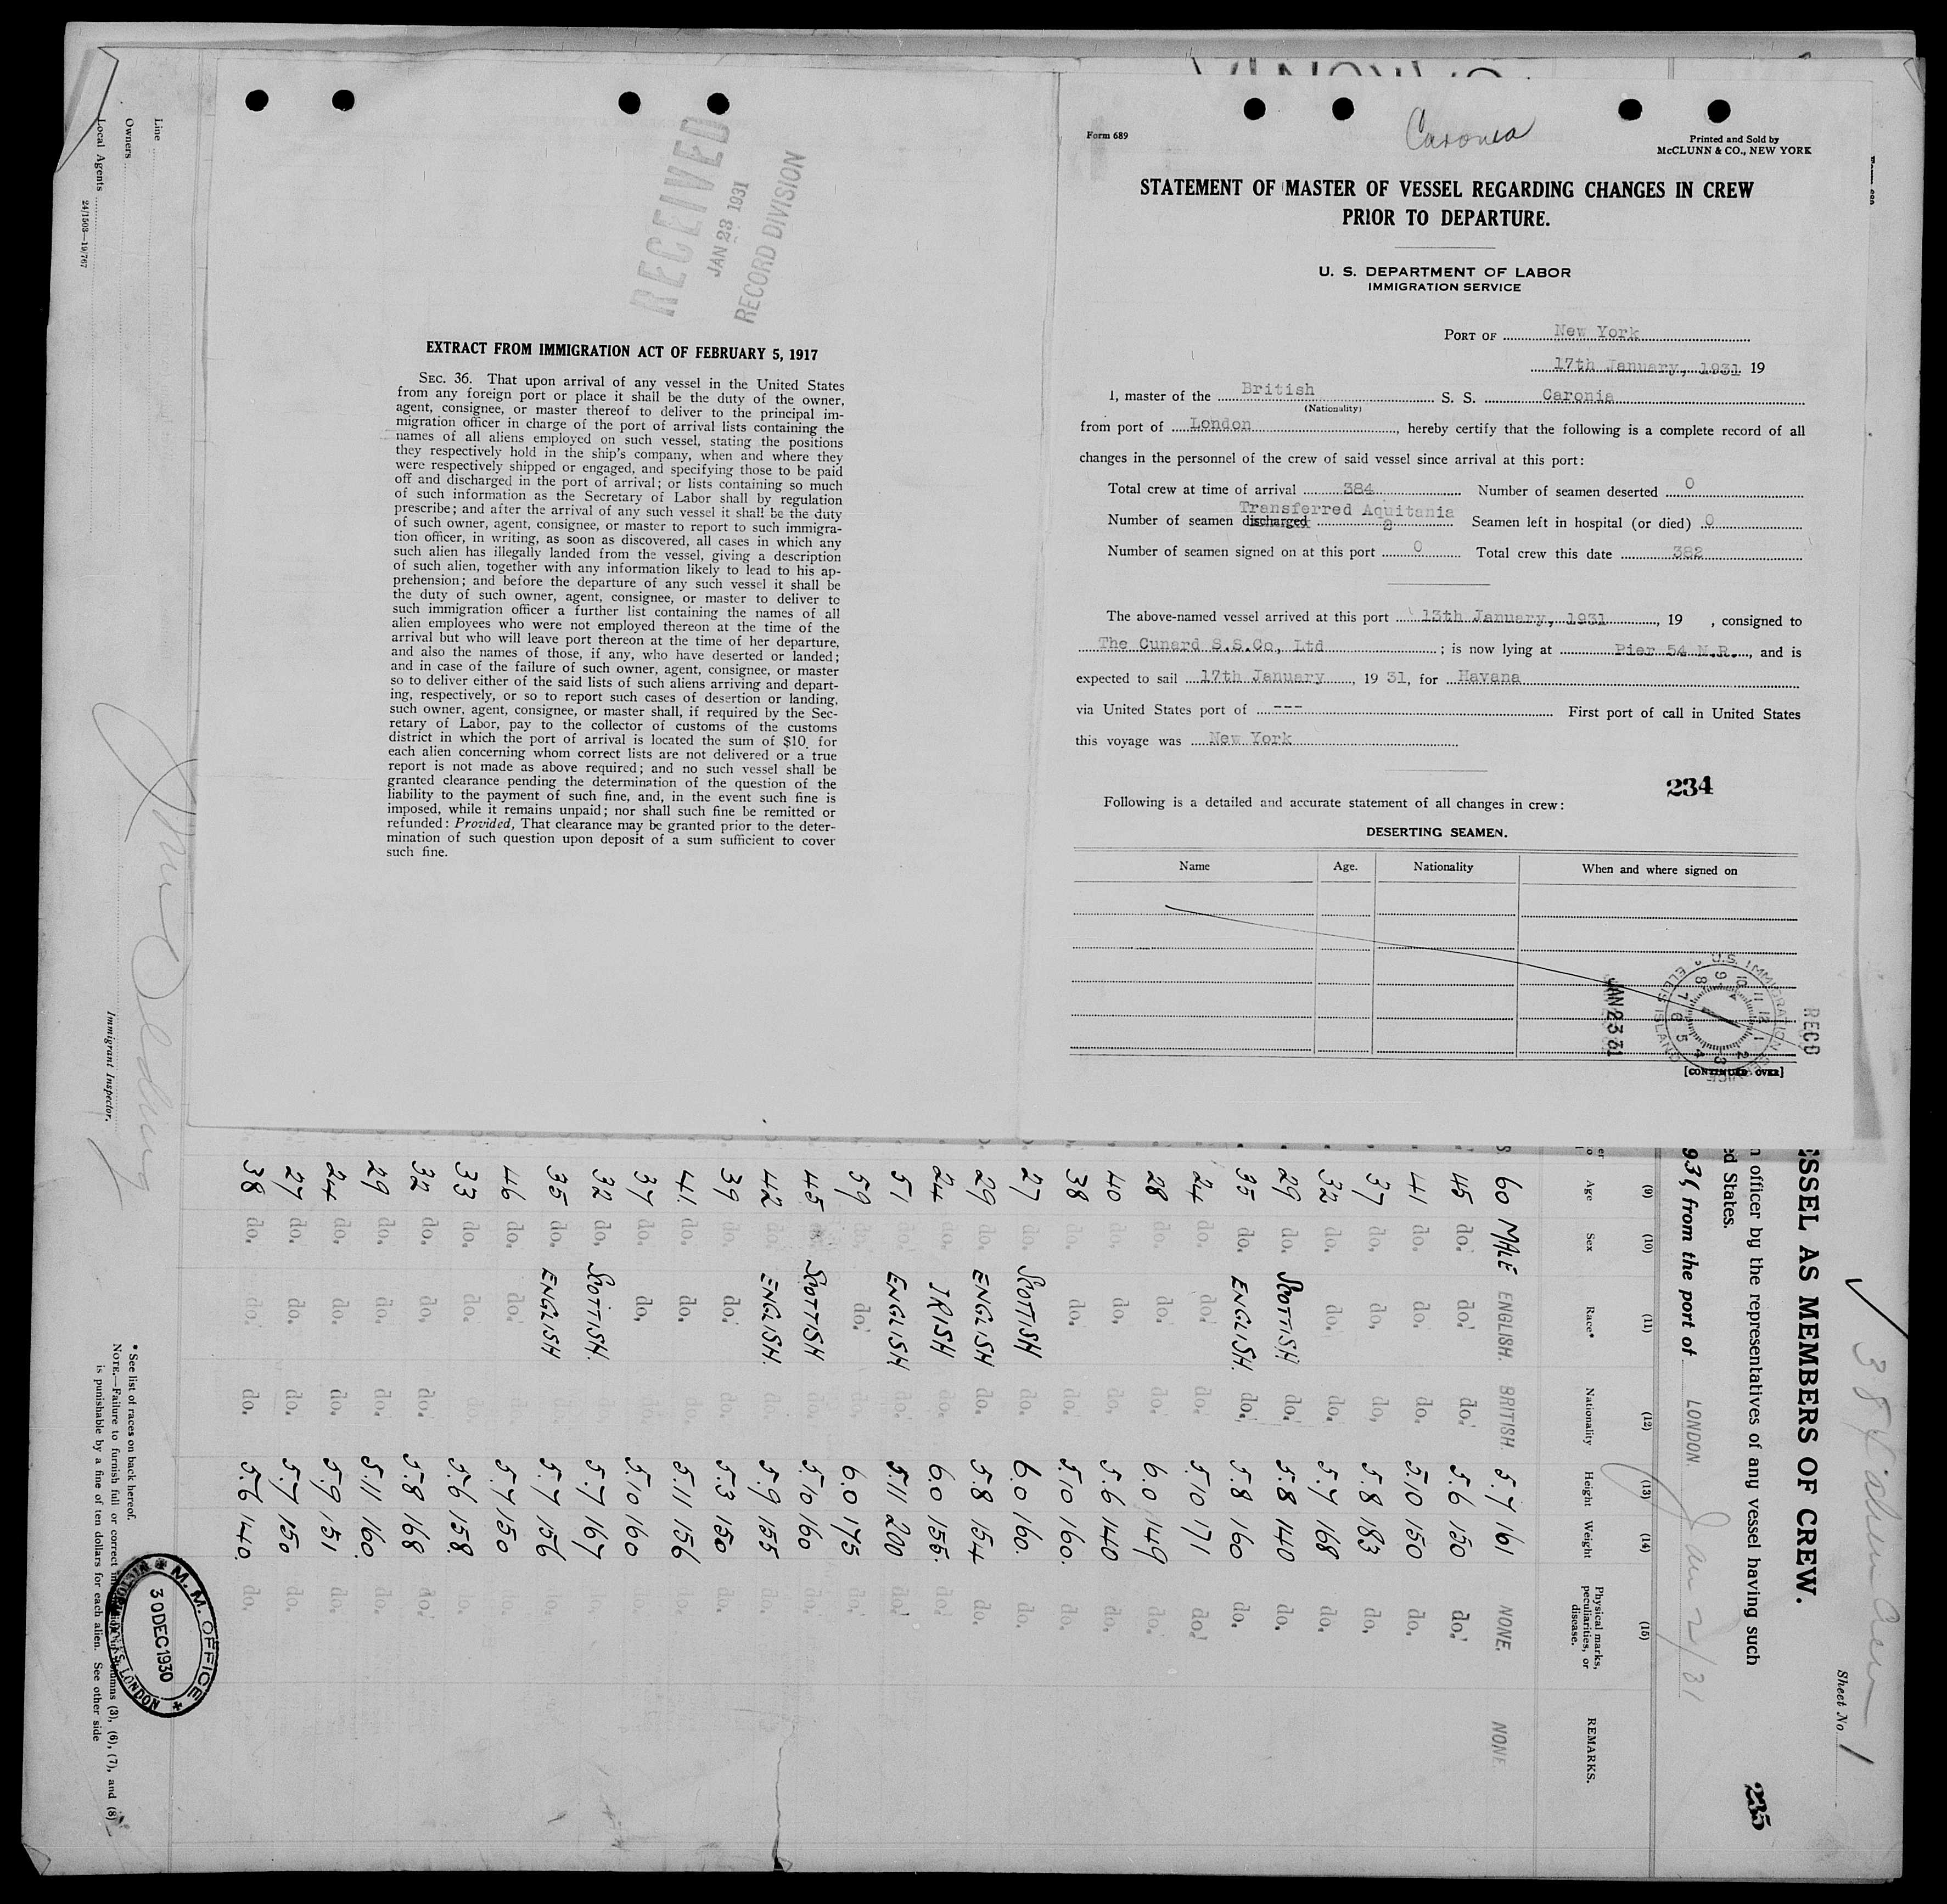 Line
Owners
Local Agents
24/1503—19/767
Immigrant Inspector.
RECEIVED
JAN 23 1931
RECORD DIVISION
EXTRACT FROM IMMIGRATION ACT OF FEBRUARY 5, 1917
SEC. 36. That upon arrival of any vessel in the United States
from any foreign port or place it shall be the duty of the owner,
agent, consignee, or master thereof to deliver to the principal im-
migration officer in charge of the port of arrival lists containing the
names of all aliens employed on such vessel, stating the positions
they respectively hold in the ship's company, when and where they
were respectively shipped or engaged, and specifying those to be paid
off and discharged in the port of arrival; or lists containing so much
of such information as the Secretary of Labor shall by regulation
prescribe; and after the arrival of any such vessel it shall be the duty
of such owner, agent, consignee, or master to report to such immigra-
tion officer, in writing, as soon as discovered, all cases in which any
such alien has illegally landed from the vessel, giving a description
of such alien, together with any information likely to lead to his ap-
prehension; and before the departure of any such vessel it shall be
the duty of such owner, agent, consignee, or master to deliver to
such immigration officer a further list containing the names of all
alien employees who were not employed thereon at the time of the
arrival but who will leave port thereon at the time of her departure,
and also the names of those, if any, who have deserted or landed;
and in case of the failure of such owner, agent, consignee, or master
so to deliver either of the said lists of such aliens arriving and depart-
ing, respectively, or so to report such cases of desertion or landing,
such owner, agent, consignee, or master shall, if required by the Sec-
retary of Labor, pay to the collector of customs of the customs
district in which the port of arrival is located the sum of $10 for
each alien concerning whom correct lists are not delivered or a true
report is not made as above required; and no such vessel shall be
granted clearance pending the determination of the question of the
liability to the payment of such fine, and, in the event such fine is
imposed, while it remains unpaid; nor shall such fine be remitted or
refunded: Provided, That clearance may be granted prior to the deter-
mination of such question upon deposit of a sum sufficient to cover
such fine.
Form 689
Caronia
Printed and Sold by
McCLUNN & CO., NEW YORK
STATEMENT OF MASTER OF VESSEL REGARDING CHANGES IN CREW
PRIOR TO DEPARTURE.
U. S. DEPARTMENT OF LABOR
IMMIGRATION SERVICE
PORT OF New York
17th January, 1931 19
I, master of the British S. S. Caronia
(Nationality)
from port of London, hereby certify that the following is a complete record of all
changes in the personnel of the crew of said vessel since arrival at this port:
Total crew at time of arrival 384 Number of seamen deserted 0
Transferred Aquitania
Number of seamen discharged 2 Seamen left in hospital (or died) 0
Number of seamen signed on at this port 0 Total crew this date 382
The above-named vessel arrived at this port 13th January, 1931, 19 , consigned to
The Cunard S.S.Co, Ltd ; is now lying at Pier 54 N.R., and is
expected to sail 17th January, 19 31, for Havana
via United States port of --- First port of call in United States
this voyage was New York
234
Following is a detailed and accurate statement of all changes in crew:
DESERTING SEAMEN.
Name Age. Nationality When and where signed on
JAN 23 31
U.S. IMMIGRATION SERVICE ELLIS ISLAND
RECD
[CONTINUED OVER]
Sheet No. 1
235
SSEL AS MEMBERS OF CREW.
officer by the representatives of any vessel having such
ed States.
931 from the port of LONDON. Jan 2/31
(9) (10) (11) (12) (13) (14) (15)
Age Sex Race* Nationality Height Weight Physical marks, peculiarities, or disease. REMARKS.
60 MALE ENGLISH. BRITISH. 5.7 161 NONE. NONE
45 do. do. do. 5.6 150 do.
41 do. do. do. 5.10 150 do.
37 do. do. do. 5.8 183 do.
32 do. do. do. 5.7 168 do.
29 do. SCOTTISH do. 5.8 140 do.
35 do. ENGLISH. do. 5.8 160 do.
24 do. do. do. 5.10 171 do.
28 do. do. do. 6.0 149 do.
40 do. do. do. 5.6 140 do.
38 do. do. do. 5.10 160. do.
27 do. SCOTTISH do. 6.0 160. do.
29 do. ENGLISH do. 5.8 154 do.
24 do. IRISH do. 6.0 155. do.
51 do. ENGLISH do. 5.11 200 do.
59 do. do. do. 6.0 175 do.
45 do. SCOTTISH do. 5.10 160 do.
42 do. ENGLISH. do. 5.9 155 do.
39 do. do. do. 5.3 150 do.
41 do. do. do. 5.11 156 do.
37 do. do. do. 5.10 160 do.
32 do. SCOTTISH. do. 5.7 167 do.
35 do. ENGLISH do. 5.7 156 do.
46 do. do. do. 5.7 150 do.
33 do. do. do. 5.6 158 do.
32 do. do. do. 5.8 168 do.
29 do. do. do. 5.11 160 do.
24 do. do. do. 5.9 151 do.
27 do. do. do. 5.7 150 do.
38 do. do. do. 5.6 140. do.
* See list of races on back hereof.
NOTE.—Failure to furnish full or correct columns (3), (6), (7), and (8)
is punishable by a fine of ten dollars for each alien. See other side
M.M. OFFICE
30 DEC 1930
DOCKS, LONDON